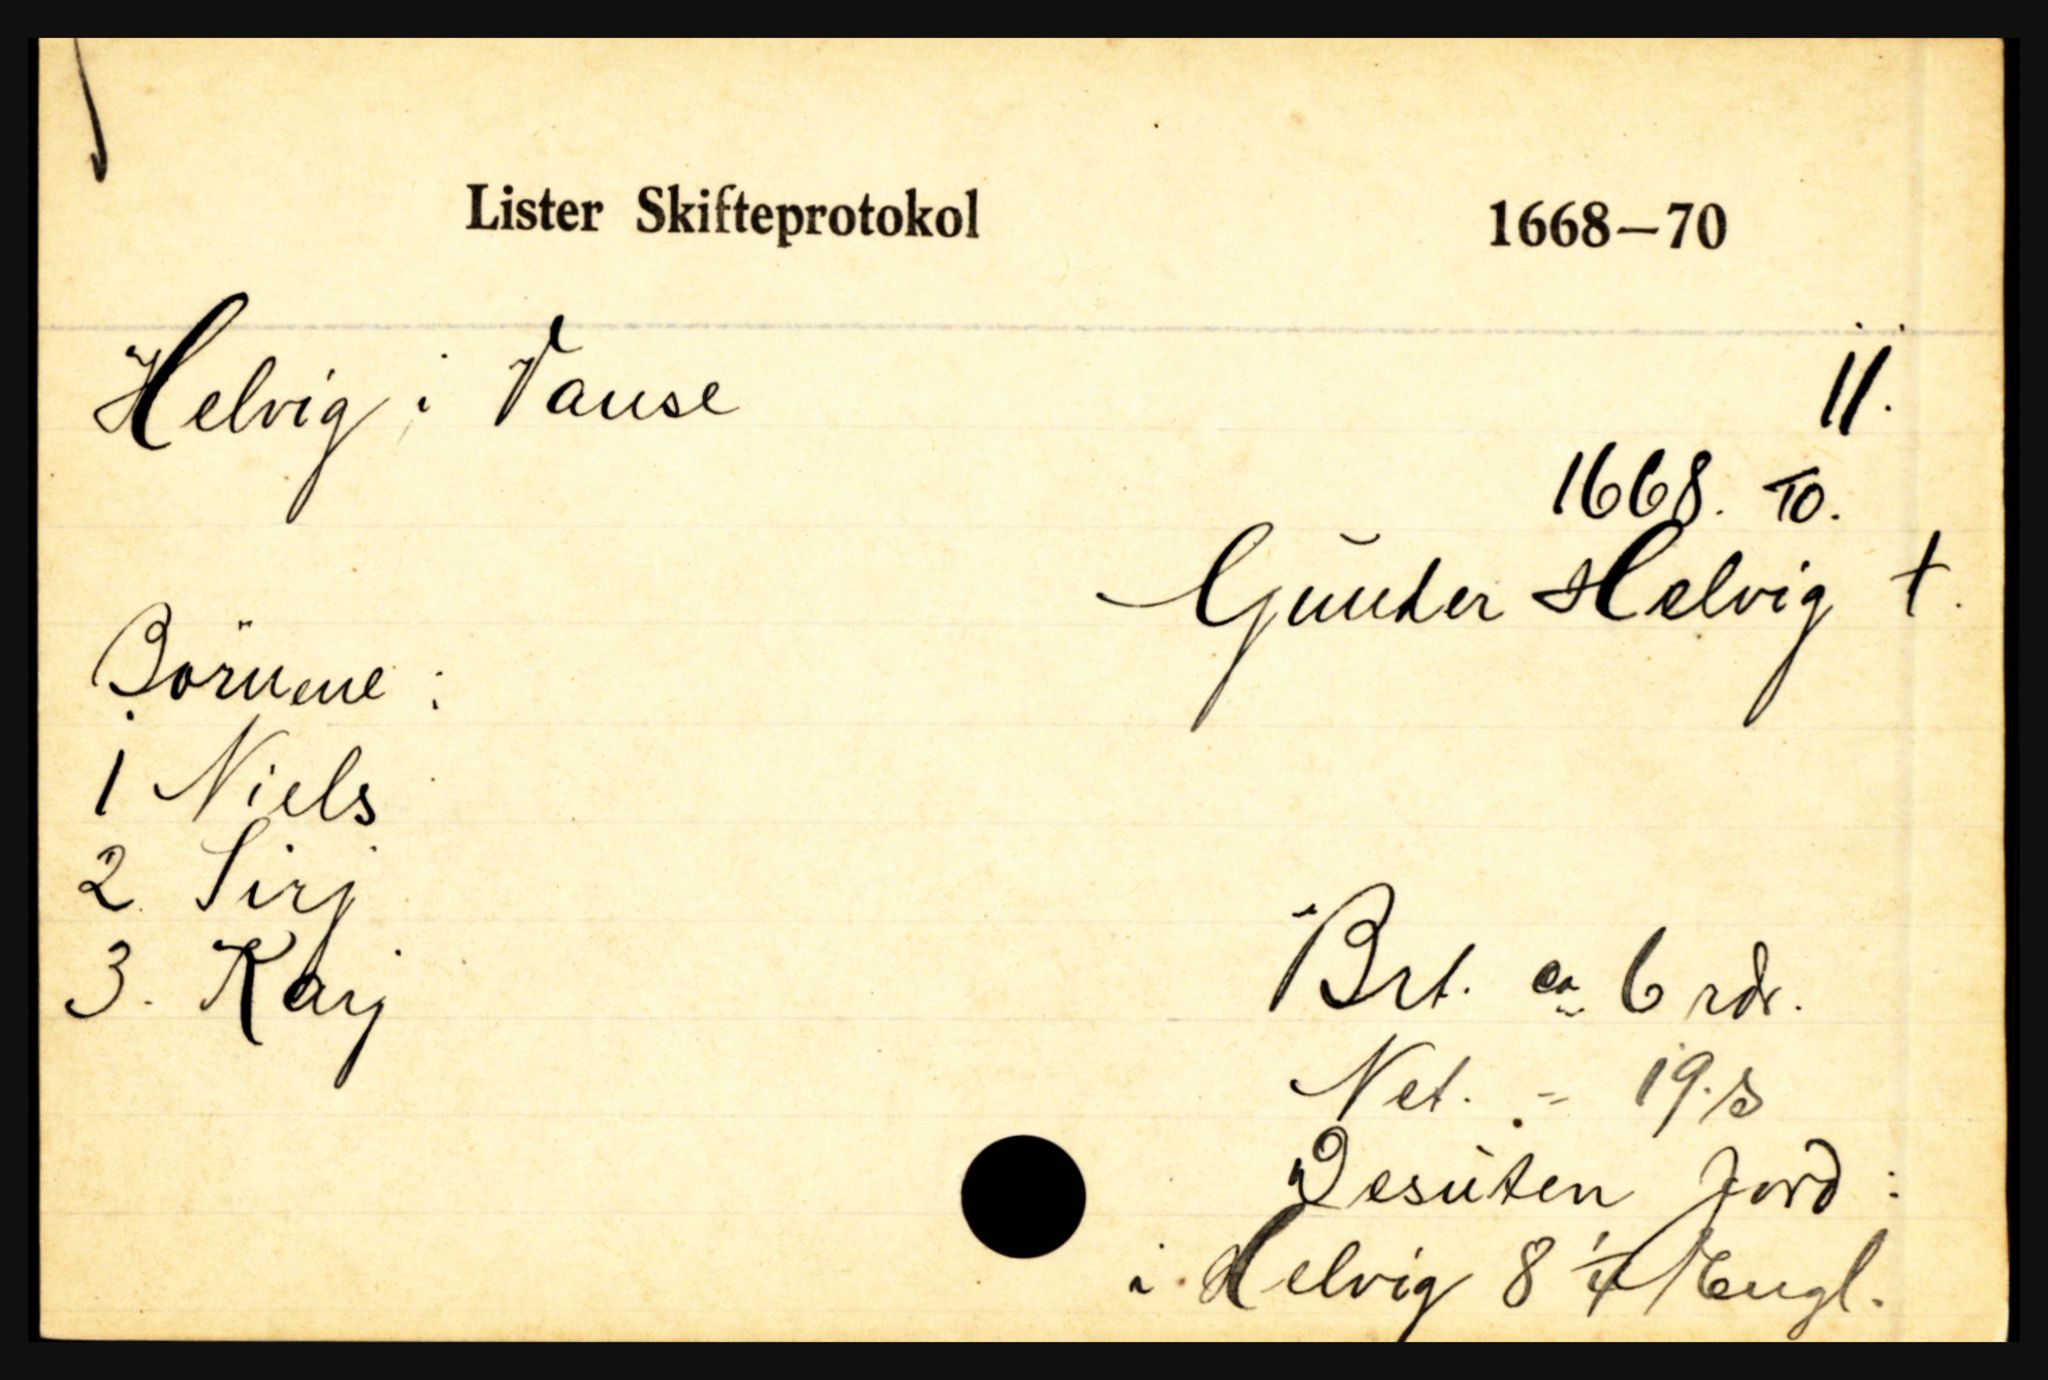 Lister Skifteprotokol 1668—70
Helvig i Vanse 11.
1668. 10.
Gunder Helvig †.
Börnene :
1 Niels
2 Sirj
3. Karj
Brt. ca 6 rdr.
Net. - 19. s
Desuten Jord :
i Helvig 8 1/4 Mengl.